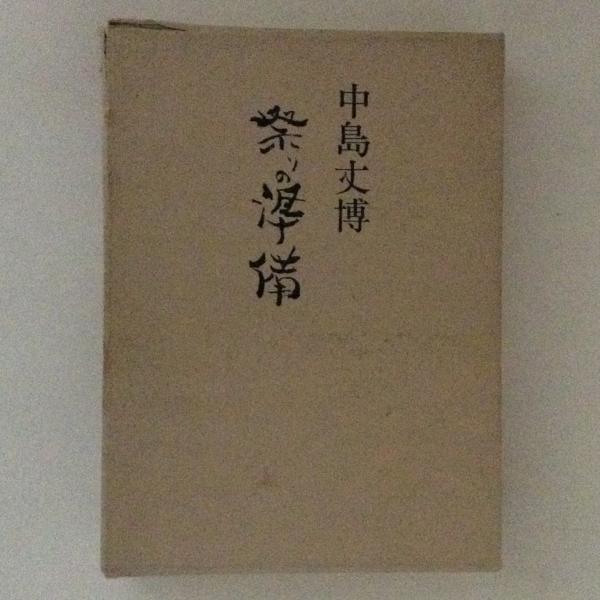 中島丈博
祭りの準備